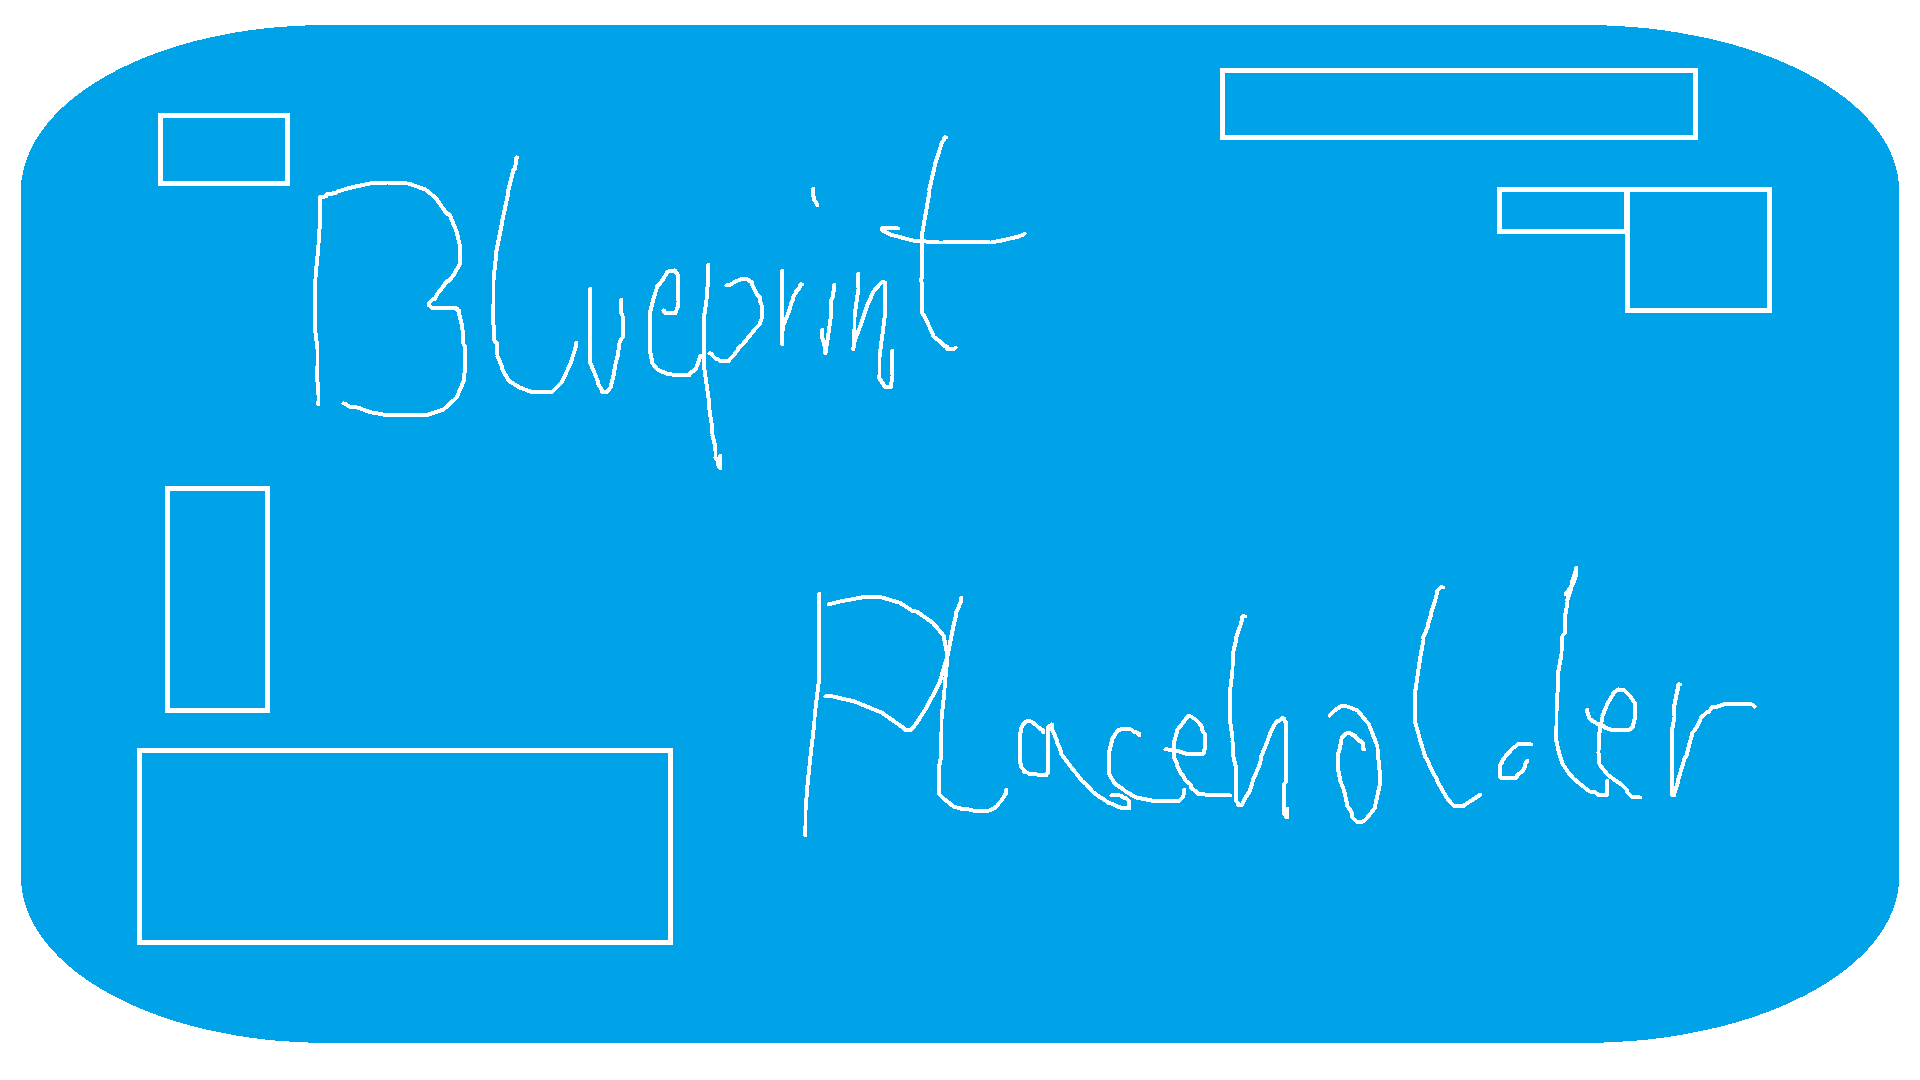 Blueprint
Placeholder